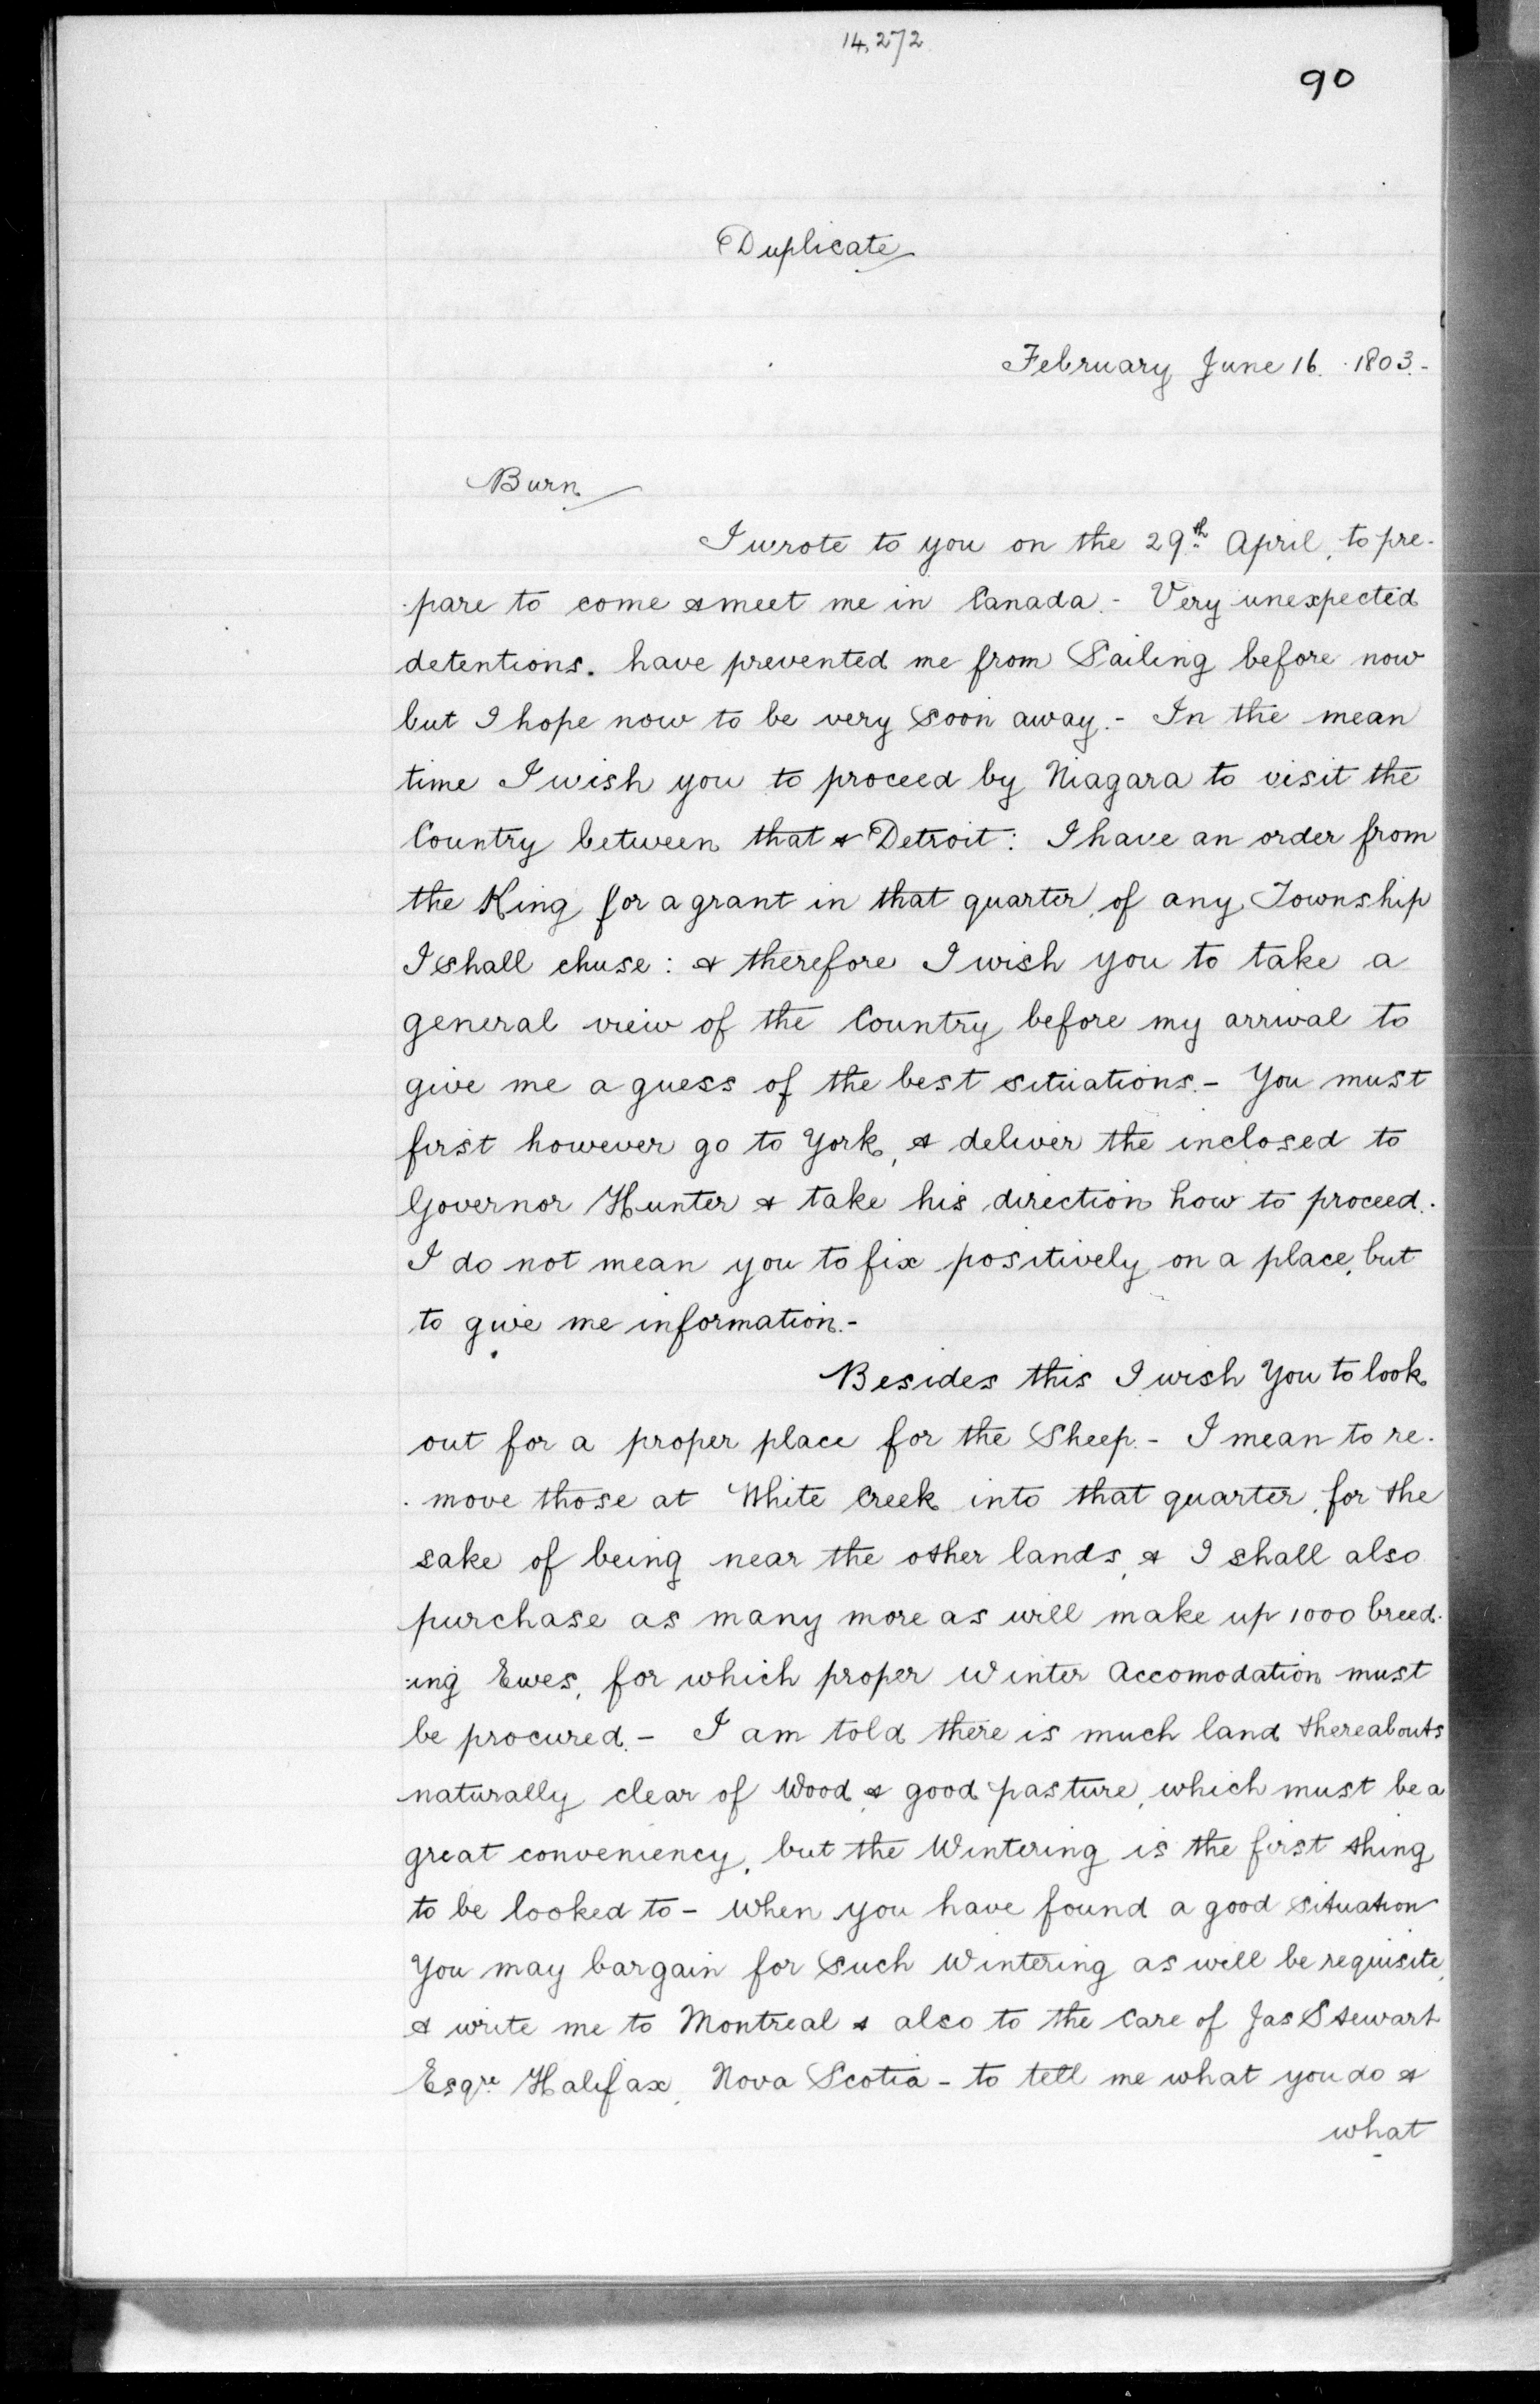 14,272
90
Duplicate
February June 16. 1803.-
Burn
I wrote to you on the 29th April, to pre-
-pare to come & meet me in Canada.- Very unexpected
detentions. have prevented me from Sailing before now
but I hope now to be very soon away.- In the mean
time I wish you to proceed by Niagara to visit the
Country between that & Detroit: I have an order from
the King for a grant in that quarter, of any Township
I shall chuse: & therefore I wish you to take a
general view of the Country before my arrival to
give me a guess of the best situations.- You must
first however go to York, & deliver the inclosed to
Governor Hunter & take his direction how to proceed.
I do not mean you to fix positively on a place, but
to give me information.-
Besides this I wish You to look
out for a proper place for the Sheep.- I mean to re-
-move those at White Creek into that quarter, for the
sake of being near the other lands, & I shall also
purchase as many more as will make up 1000 breed-
-ing Ewes, for which proper Winter Accomodation must
be procured.- I am told there is much land thereabouts
naturally clear of Wood, & good pasture, which must be a
great conveniency, but the Wintering is the first thing
to be looked to - When you have found a good situation
You may bargain for such Wintering as will be requisite,
& write me to Montreal & also to the Care of Jas Stewart
Esqre Halifax, Nova Scotia - to tell me what you do &
what